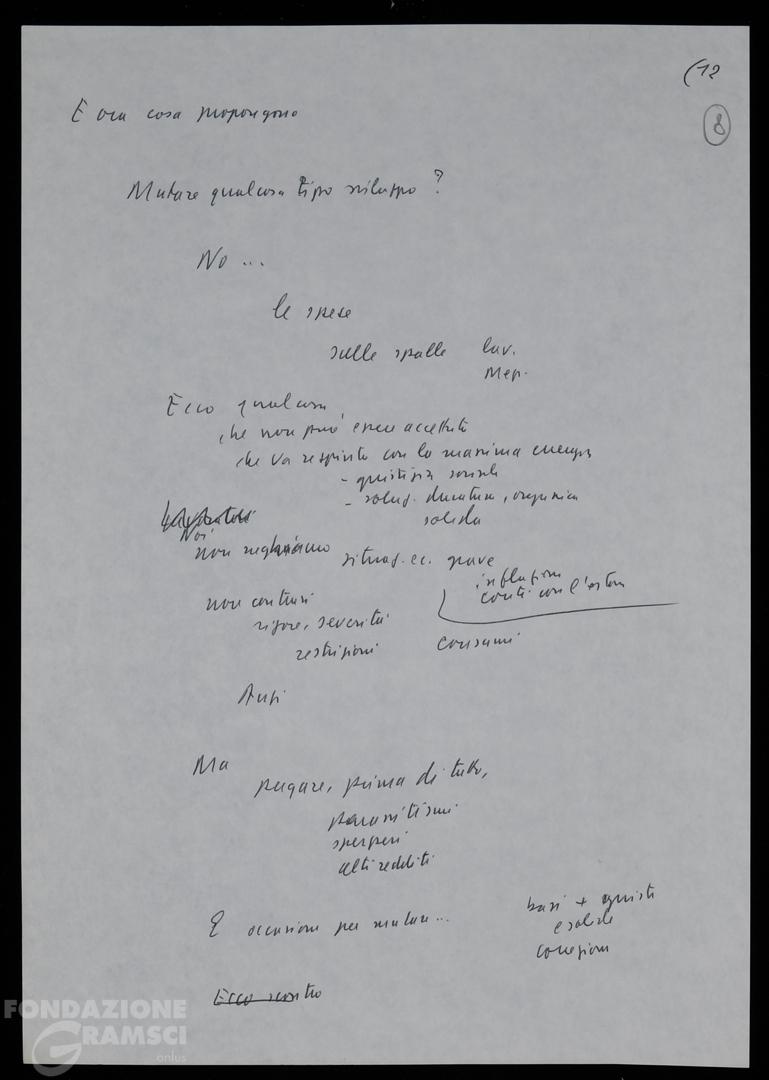 (12
8
E ora cosa propongono
Mutare qualcosa tipo sviluppo?
No ...
le spese
sulle spalle lav.
Mep.
Ecco qualcosa
che non può essere accettato
che va respinto con la massima energia
- giustizia sociale
- soluz. duratura, organica
solida
Noi
non neghiamo situaz. ec. grave
inflazione
conti con l'estero
non contrari
rigore, severità
restrizioni consumi
Anzi
Ma
pagare, prima di tutto,
parassitismi
sperperi
alti redditi
E occasione per mutare...
basi + giuste
e solide
Ecco scontro
FONDAZIONE
GRAMSCI
onlus